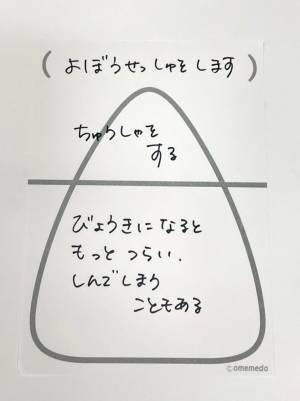 ( よぼうせっしゅをします )
ちゅうしゃを
する
びょうきになると
もっと つらい.
しんでしまう
こともある
©omemedo